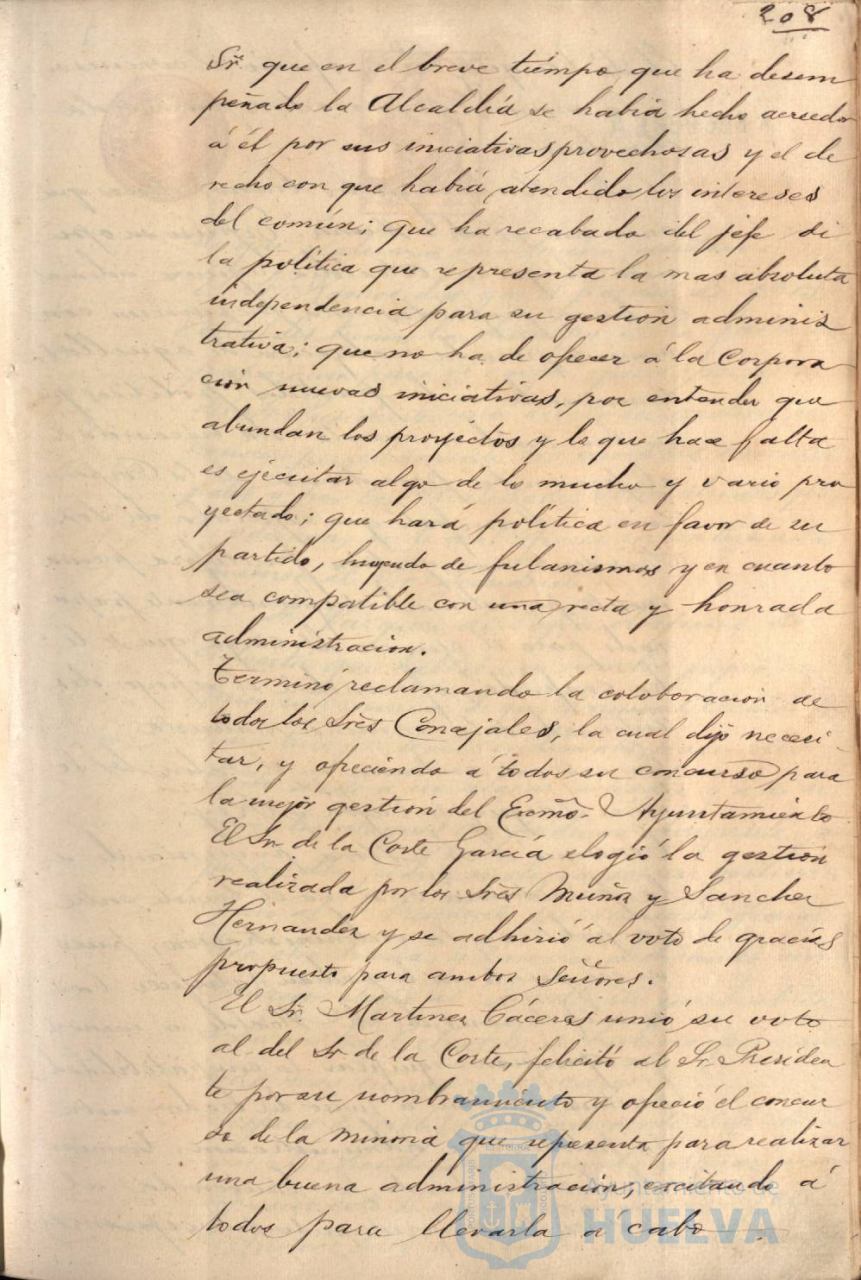 208
Sr. que en el breve tiempo que ha desem
peñado la Alcaldía se había hecho acreedor
á él por sus iniciativas provechosas y el de
recho con que había atendido los intereses
del común; que ha recabado del jefe de
la política que representa la mas absoluta
independencia para su gestion adminis
trativa; que no ha de ofrecer á la Corpora
cion nuevas iniciativas, por entender que
abundan los proyectos y lo que hace falta
es ejecutar algo de lo mucho y vario pro
yectado; que hará política en favor de su
partido, huyendo de fulanismos y en cuanto
sea compatible con una recta y honrada
administracion.
Terminó reclamando la colaboracion de
todos los Sres Concejales, la cual dijo necesi-
tar, y ofreciendo á todos su concurso para
la mejor gestión del Excmo. Ayuntamiento
El Sr. de la Corte García elogió la gestion
realizada por los Sres Muñoz y Sanchez
Hernandez y se adhirió al voto de gracias
propuesto para ambos señores.
El Sr. Martinez Cáceres unió su voto
al del Sr de la Corte, felicitó al Sr. Presiden
te por su nombramiento y ofreció el concur
so de la minoria que representa para realizar
una buena administracion, excitando á
todos para llevarla á cabo
Ayuntamiento de
HUELVA